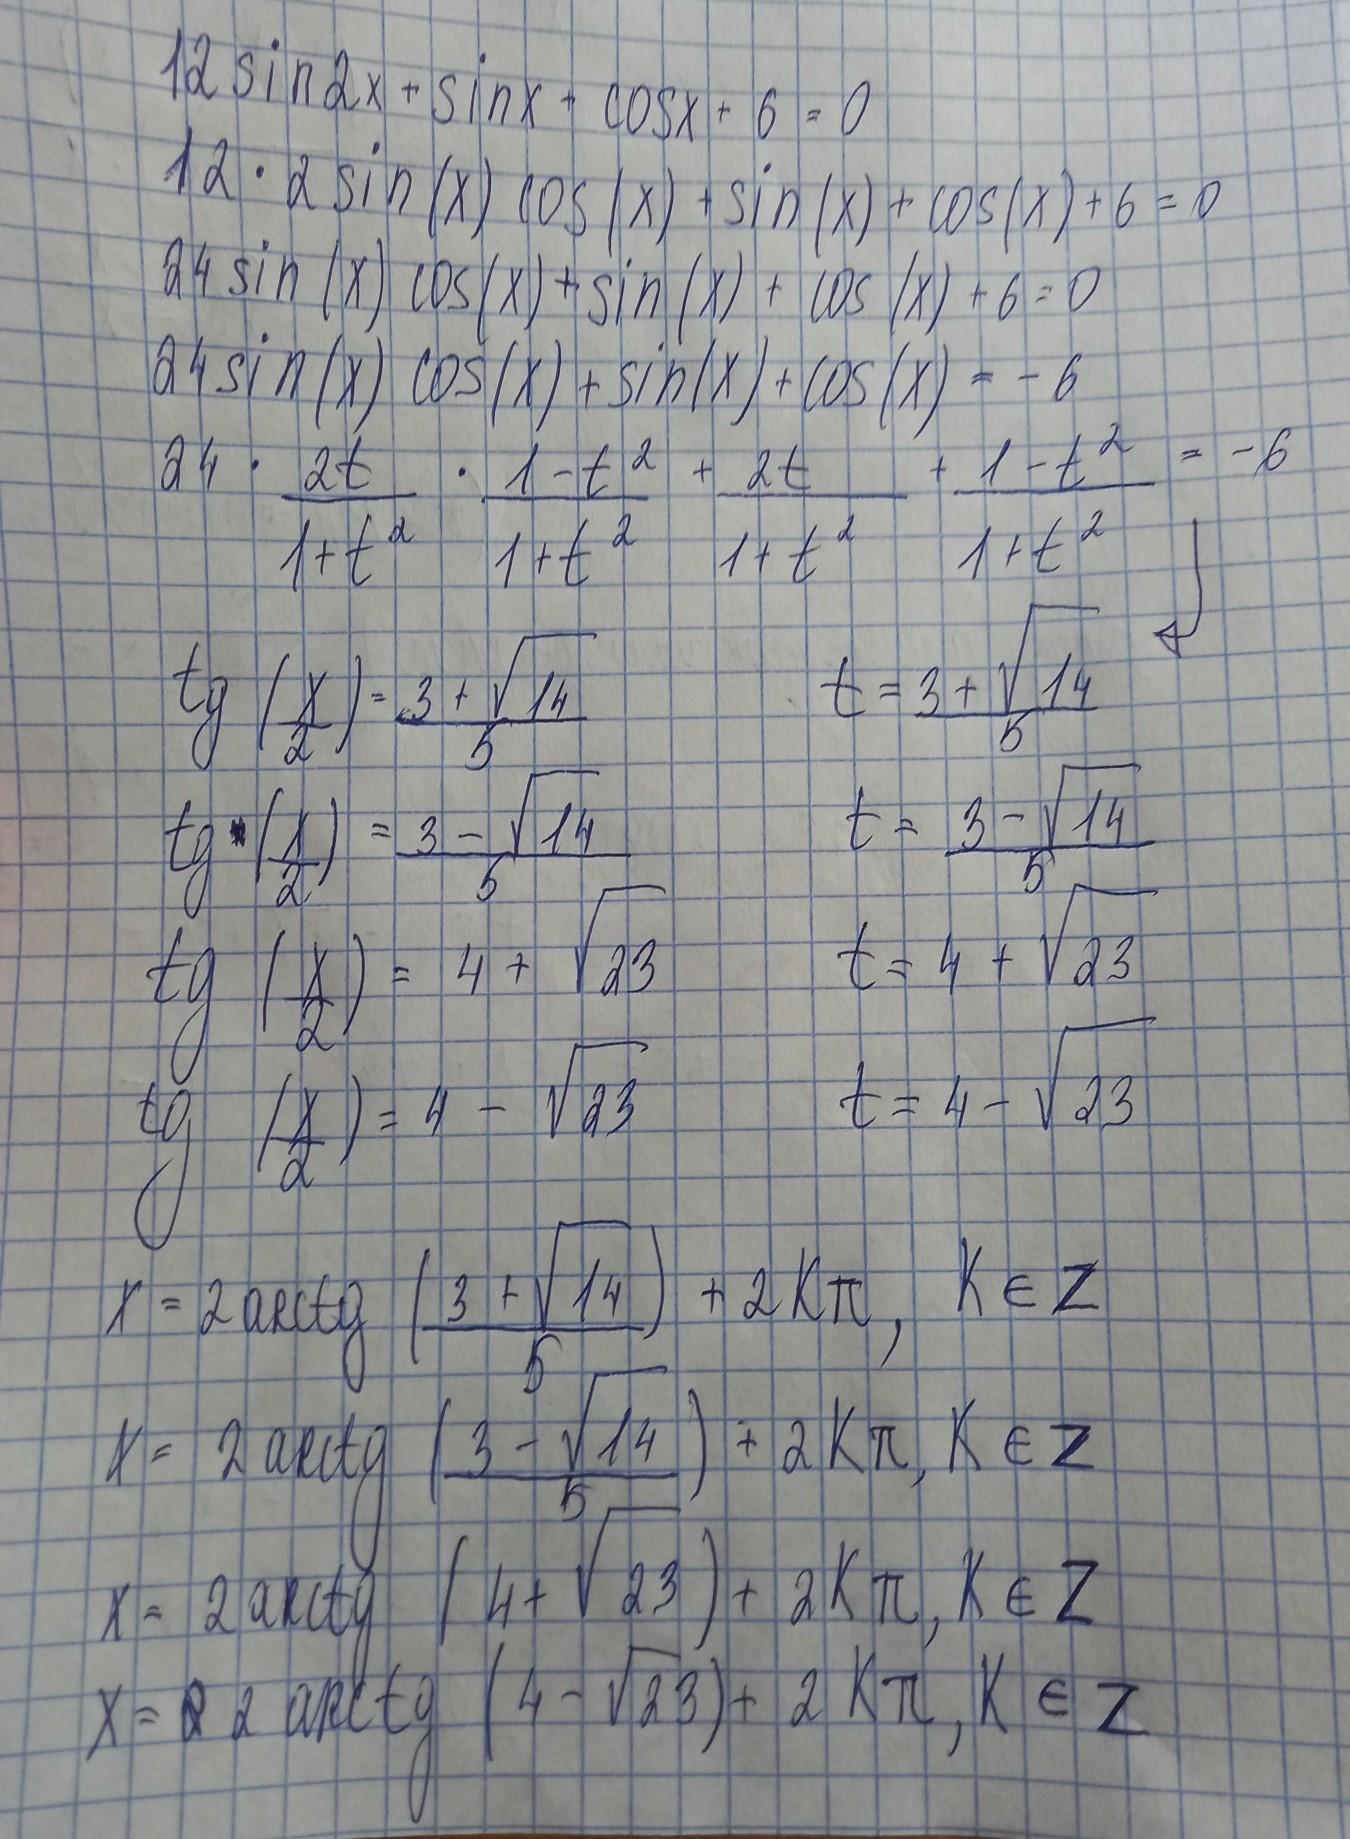 12 sin2x + sinx + cosx + 6 = 0
12 · 2 sin(x) cos(x) + sin(x) + cos(x) + 6 = 0
24 sin(x) cos(x) + sin(x) + cos(x) + 6 = 0
24 sin(x) cos(x) + sin(x) + cos(x) = -6
24 · 2t/(1+t²) · (1-t²)/(1+t²) + 2t/(1+t²) + (1-t²)/(1+t²) = -6
tg (x/2) = (3+√14)/5 t = (3+√14)/5
tg (x/2) = (3-√14)/5 t = (3-√14)/5
tg (x/2) = 4+√23 t = 4+√23
tg (x/2) = 4-√23 t = 4-√23
x = 2 arctg ((3+√14)/5) + 2Kπ, K∈Z
x = 2 arctg ((3-√14)/5) + 2Kπ, K∈Z
x = 2 arctg (4+√23) + 2Kπ, K∈Z
x = 2 arctg (4-√23) + 2Kπ, K∈Z